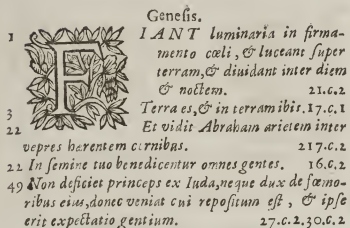 Genesis.
1 FIANT luminaria in firma-
mento cœli, & luceant super
terram, & diuidant inter diem
& noctem. 21.c.2
3 Terra es, & in terram ibis. 17.c.1
22 Et vidit Abraham arietem inter
vepres hærentem cornibus. 217.c.2
22 In semine tuo benedicentur omnes gentes. 16.c.2
49 Non deficiet princeps ex Iuda, neque dux de fœmo-
ribus eius, donec veniat cui repositum est, & ipse
erit expectatio gentium. 27.c.2.30.c.2